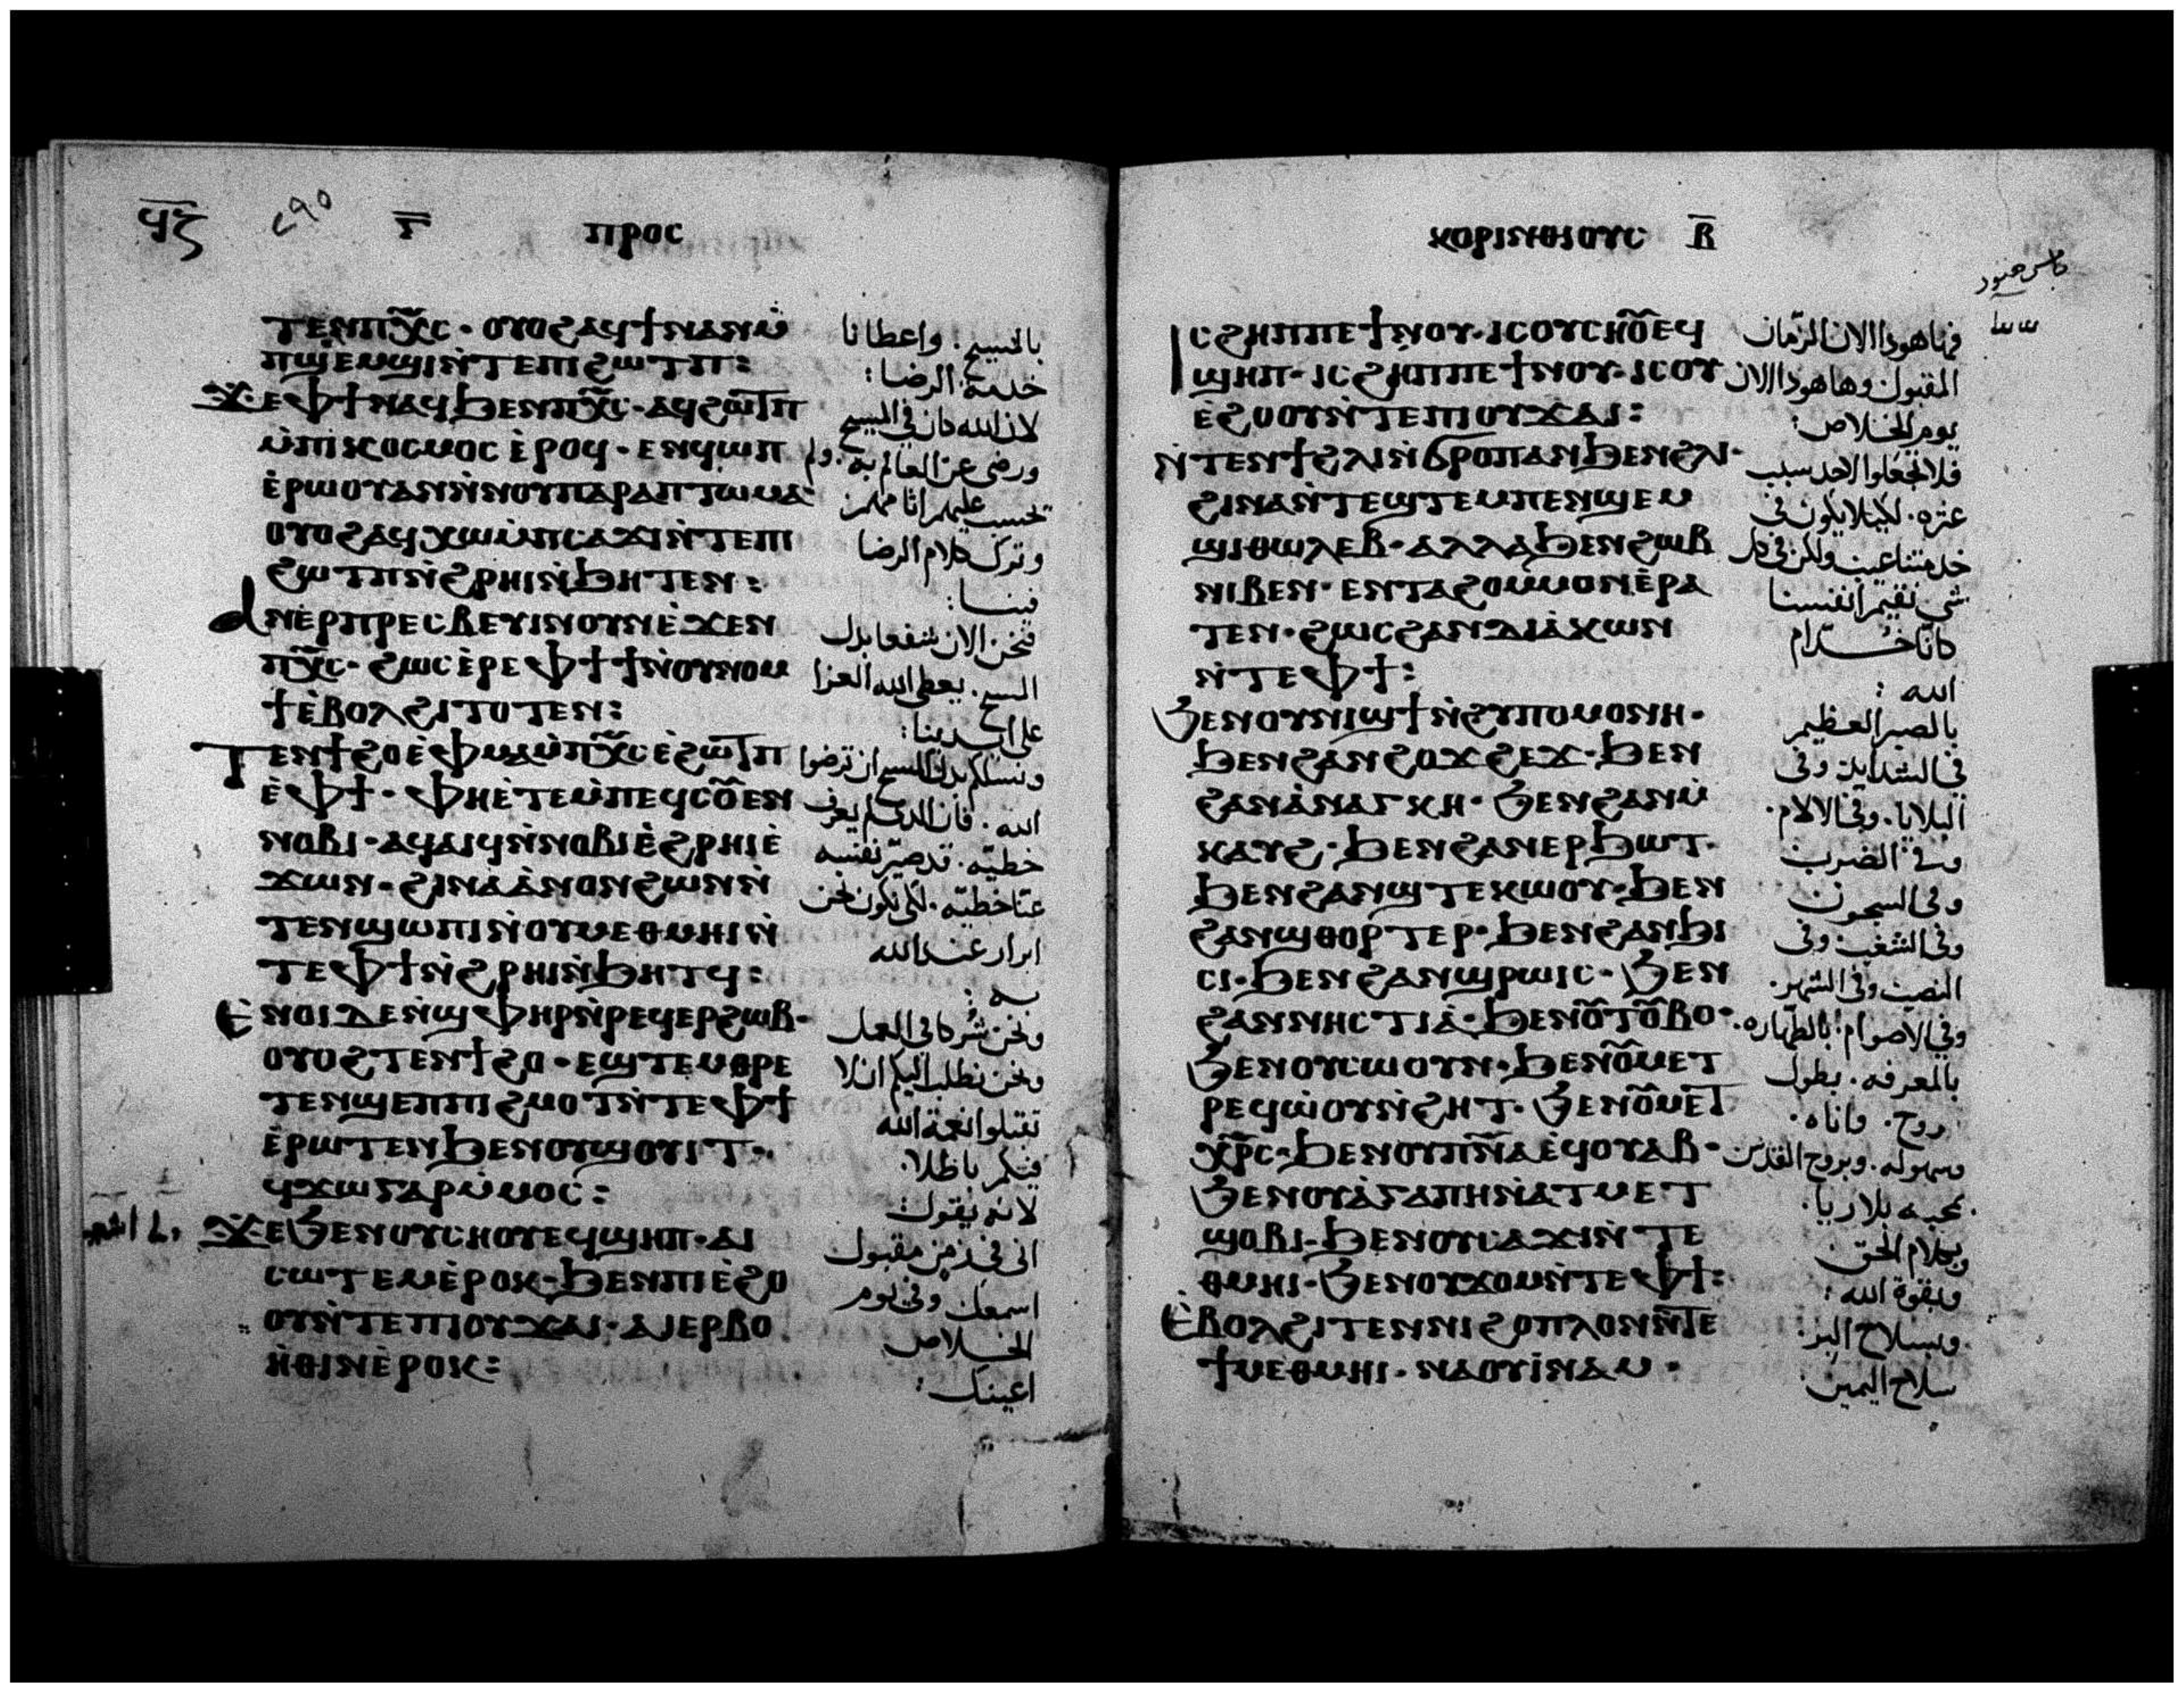 ϥ̅ⲍ̅ ٢٩٥ ⲅ̅ ⲡⲣⲟⲥ
ⲧⲉⲛⲡⲭ̅ⲥ · ⲟⲩⲟϩⲁϥϯⲛⲁⲛⲙ̀
ⲡϣⲉⲙϣⲓⲛ̀ⲧⲉⲡⲓϩⲱⲧⲡ :
ϫⲉⲫϯⲛⲁϥϧⲉⲛⲡⲭ̅ⲥ · ⲁϥϩⲱⲧⲡ
ⲙ̀ⲡⲓⲕⲟⲥⲙⲟⲥ ⲉ̀ⲣⲟϥ · ⲉⲛϥⲱⲡ
ⲉ̀ⲣⲱⲟⲩⲁⲛⲛ̀ⲛⲟⲩⲡⲁⲣⲁⲡⲧⲱⲙⲁ ·
ⲟⲩⲟϩⲁϥⲭⲱⲙ̀ⲡⲥⲁϫⲓⲛ̀ⲧⲉⲡⲓ
ϩⲱⲧⲡⲛ̀ϩⲣⲏⲓⲛ̀ϧⲏⲧⲉⲛ :
ⲁⲛⲉⲣⲡⲣⲉⲥⲃⲉⲩⲓⲛⲟⲩⲛⲉ̀ϫⲉⲛ
ⲡⲭ̅ⲥ · ϩⲱⲥⲉ̀ⲣⲉⲫϯϯⲛ̀ⲟⲩⲛⲟⲙ
ϯⲉ̀ⲃⲟⲗϩⲓⲧⲟⲧⲉⲛ :
ⲧⲉⲛϯϩⲟⲉ̀ⲫⲙⲁⲙ̀ⲡⲭ̅ⲥⲉ̀ϩⲱⲧⲡ
ⲉ̀ⲫϯ · ⲫⲏⲉ̀ⲧⲉⲙ̀ⲡⲉϥⲥⲟ̅ⲉⲛ
ⲛⲟⲃⲓ · ⲁϥⲁⲓϥⲛ̀ⲛⲟⲃⲓⲉ̀ϩⲣⲏⲓⲉ̀
ϫⲱⲛ · ϩⲓⲛⲁⲁ̀ⲛⲟⲛϩⲱⲛⲛ̀
ⲧⲉⲛϣⲱⲡⲓⲛ̀ⲟⲩⲙⲉⲑⲙⲏⲓⲛ̀
ⲧⲉⲫϯⲛ̀ϩⲣⲏⲓⲛ̀ϧⲏⲧϥ :
ⲉ̀ⲛⲟⲓⲇⲉⲛ̀ϣⲫⲏⲣⲛ̀ⲣⲉϥⲉⲣϩⲱⲃ ·
ⲟⲩⲟϩⲧⲉⲛϯϩⲟ · ⲉϣⲧⲉⲙⲑⲣⲉ
ⲧⲉⲛϣⲉⲡⲡⲓϩⲙⲟⲧⲛ̀ⲧⲉⲫϯ
ⲉ̀ⲣⲱⲧⲉⲛϧⲉⲛⲟⲩϣⲟⲩⲓⲧ ·
ϥϫⲱⲅⲁⲣⲙ̀ⲙⲟⲥ :
ϫⲉϧⲉⲛⲟⲩⲥⲏⲟⲩⲉϥϣⲏⲡ · ⲁⲓ
ⲥⲱⲧⲉⲙⲉ̀ⲣⲟⲕ · ϧⲉⲛⲡⲓⲉ̀ϩⲟ
ⲟⲩⲛ̀ⲧⲉⲡⲓⲟⲩϫⲁⲓ · ⲁⲓⲉⲣⲃⲟ
ⲏ̀ⲑⲓⲛⲉ̀ⲣⲟⲕ :
بالمسيح . واعطانا
خدمة الرضا :
لان الله كان في المسيح
ورضى عن العالم به . ولم
تحسب عليهم اثامهم
وترك كلام الرضا
فينا :
فنحن الان شفعا بدل
المسيح . يعطى الله العزا
على ايدينا :
ونسلكم بدل المسيح ان ترضوا
الله . فان الذى لم يعرف
خطيّه . قد صيّر نفسه
عنّا خطيّه . لكى نكون نحن
ابرار عند الله
به :
ونحن شركا في العمل
ونحن نطلب اليكم ان لا
تقبلوا نعمة الله
فيكم باطلا .
لانه يقول
انى في زمن مقبول
اسمعك وفي يوم
الخلاص
اعينك :
ⲕⲟⲣⲓⲛⲑⲓⲟⲩⲥ ⲃ̅
ⲓⲥϩⲏⲡⲡⲉϯⲛⲟⲩ · ⲓⲥⲟⲩⲥⲏⲟ̅ⲉϥ
ϣⲏⲡ · ⲓⲥϩⲏⲡⲡⲉϯⲛⲟⲩ · ⲓⲥⲟⲩ
ⲉ̀ϩⲟⲟⲩⲛ̀ⲧⲉⲡⲓⲟⲩϫⲁⲓ :
ⲛ̀ⲧⲉⲛϯϩⲗⲓⲛ̀ϭⲣⲟⲡⲁⲛϧⲉⲛϩⲗⲓ ·
ϩⲓⲛⲁⲛ̀ⲧⲉϣⲧⲉⲙⲡⲉⲛϣⲉⲙ
ϣⲓⲑⲱⲗⲉⲃ · ⲁⲗⲗⲁϧⲉⲛϩⲱⲃ
ⲛⲓⲃⲉⲛ · ⲉⲛⲧⲁϩⲟⲙⲙⲟⲛⲉ̀ⲣⲁ
ⲧⲉⲛ · ϩⲱⲥϩⲁⲛⲇⲓⲁ̀ⲕⲱⲛ
ⲛ̀ⲧⲉⲫϯ :
ϧⲉⲛⲟⲩⲛⲓϣϯⲛ̀ϩⲩⲡⲟⲙⲟⲛⲏ ·
ϧⲉⲛϩⲁⲛϩⲟϫϩⲉϫ · ϧⲉⲛ
ϩⲁⲛⲁ̀ⲛⲁⲅⲕⲏ · ϧⲉⲛϩⲁⲛⲙ̀
ⲕⲁⲩϩ · ϧⲉⲛϩⲁⲛⲉⲣϧⲱⲧ ·
ϧⲉⲛϩⲁⲛϣⲧⲉⲕⲱⲟⲩ · ϧⲉⲛ
ϩⲁⲛϣⲑⲟⲣⲧⲉⲣ · ϧⲉⲛϩⲁⲛϧⲓ
ⲥⲓ · ϧⲉⲛϩⲁⲛϣⲣⲱⲓⲥ · ϧⲉⲛ
ϩⲁⲛⲛⲏⲥⲧⲓⲁ̀ · ϧⲉⲛⲟ̅ⲧⲟ̅ⲃⲟ ·
ϧⲉⲛⲟⲩⲥⲱⲟⲩⲛ · ϧⲉⲛⲟ̅ⲙⲉⲧ
ⲣⲉϥⲱ̀ⲟⲩⲛ̀ϩⲏⲧ · ϧⲉⲛⲟ̅ⲙⲉⲧ
ⲭ̅ⲣ̅ⲥ · ϧⲉⲛⲟⲩⲡ̅ⲛ̅ⲁⲉ̀ϥⲟⲩⲁⲃ ·
ϧⲉⲛⲟⲩⲁ̀ⲅⲁⲡⲏⲛ̀ⲁⲧⲙⲉⲧ
ϣⲟⲃⲓ · ϧⲉⲛⲟⲩⲥⲁϫⲓⲛ̀ⲧⲉ
ⲑⲙⲏⲓ · ϧⲉⲛⲟⲩϫⲟⲙⲛ̀ⲧⲉⲫϯ :
ⲉ̀ⲃⲟⲗϩⲓⲧⲉⲛⲛⲓϩⲟⲡⲗⲟⲛⲛ̀ⲧⲉ
ϯⲙⲉⲑⲙⲏⲓ · ⲛⲁⲟⲩⲓ̀ⲛⲁⲙ ·
فها هوذا الان الزمان
المقبول وها هوذا الان
يوم الخلاص :
فلا تجعلوا لاحد سبب
عثره . لكيلا يكون في
خدمتنا عيب ولكن في كل
شى نقيم انفسنا
كانّا خدّام
الله :
بالصبر العظيم
في الشدايد وفى
البلايا . وفي الالام .
وفي الضرب
وفى السجون
وفى الشغب وفى
النصب وفى السهر .
وفي الاصوام بالطهاره .
بالمعرفه . بطول
روح . واناه .
وسهوله . وبروح القدس
بمحبه بلا ريا .
وبكلام الحق
وبقوة الله :
وبسلاح البر .
سلاح اليمين .